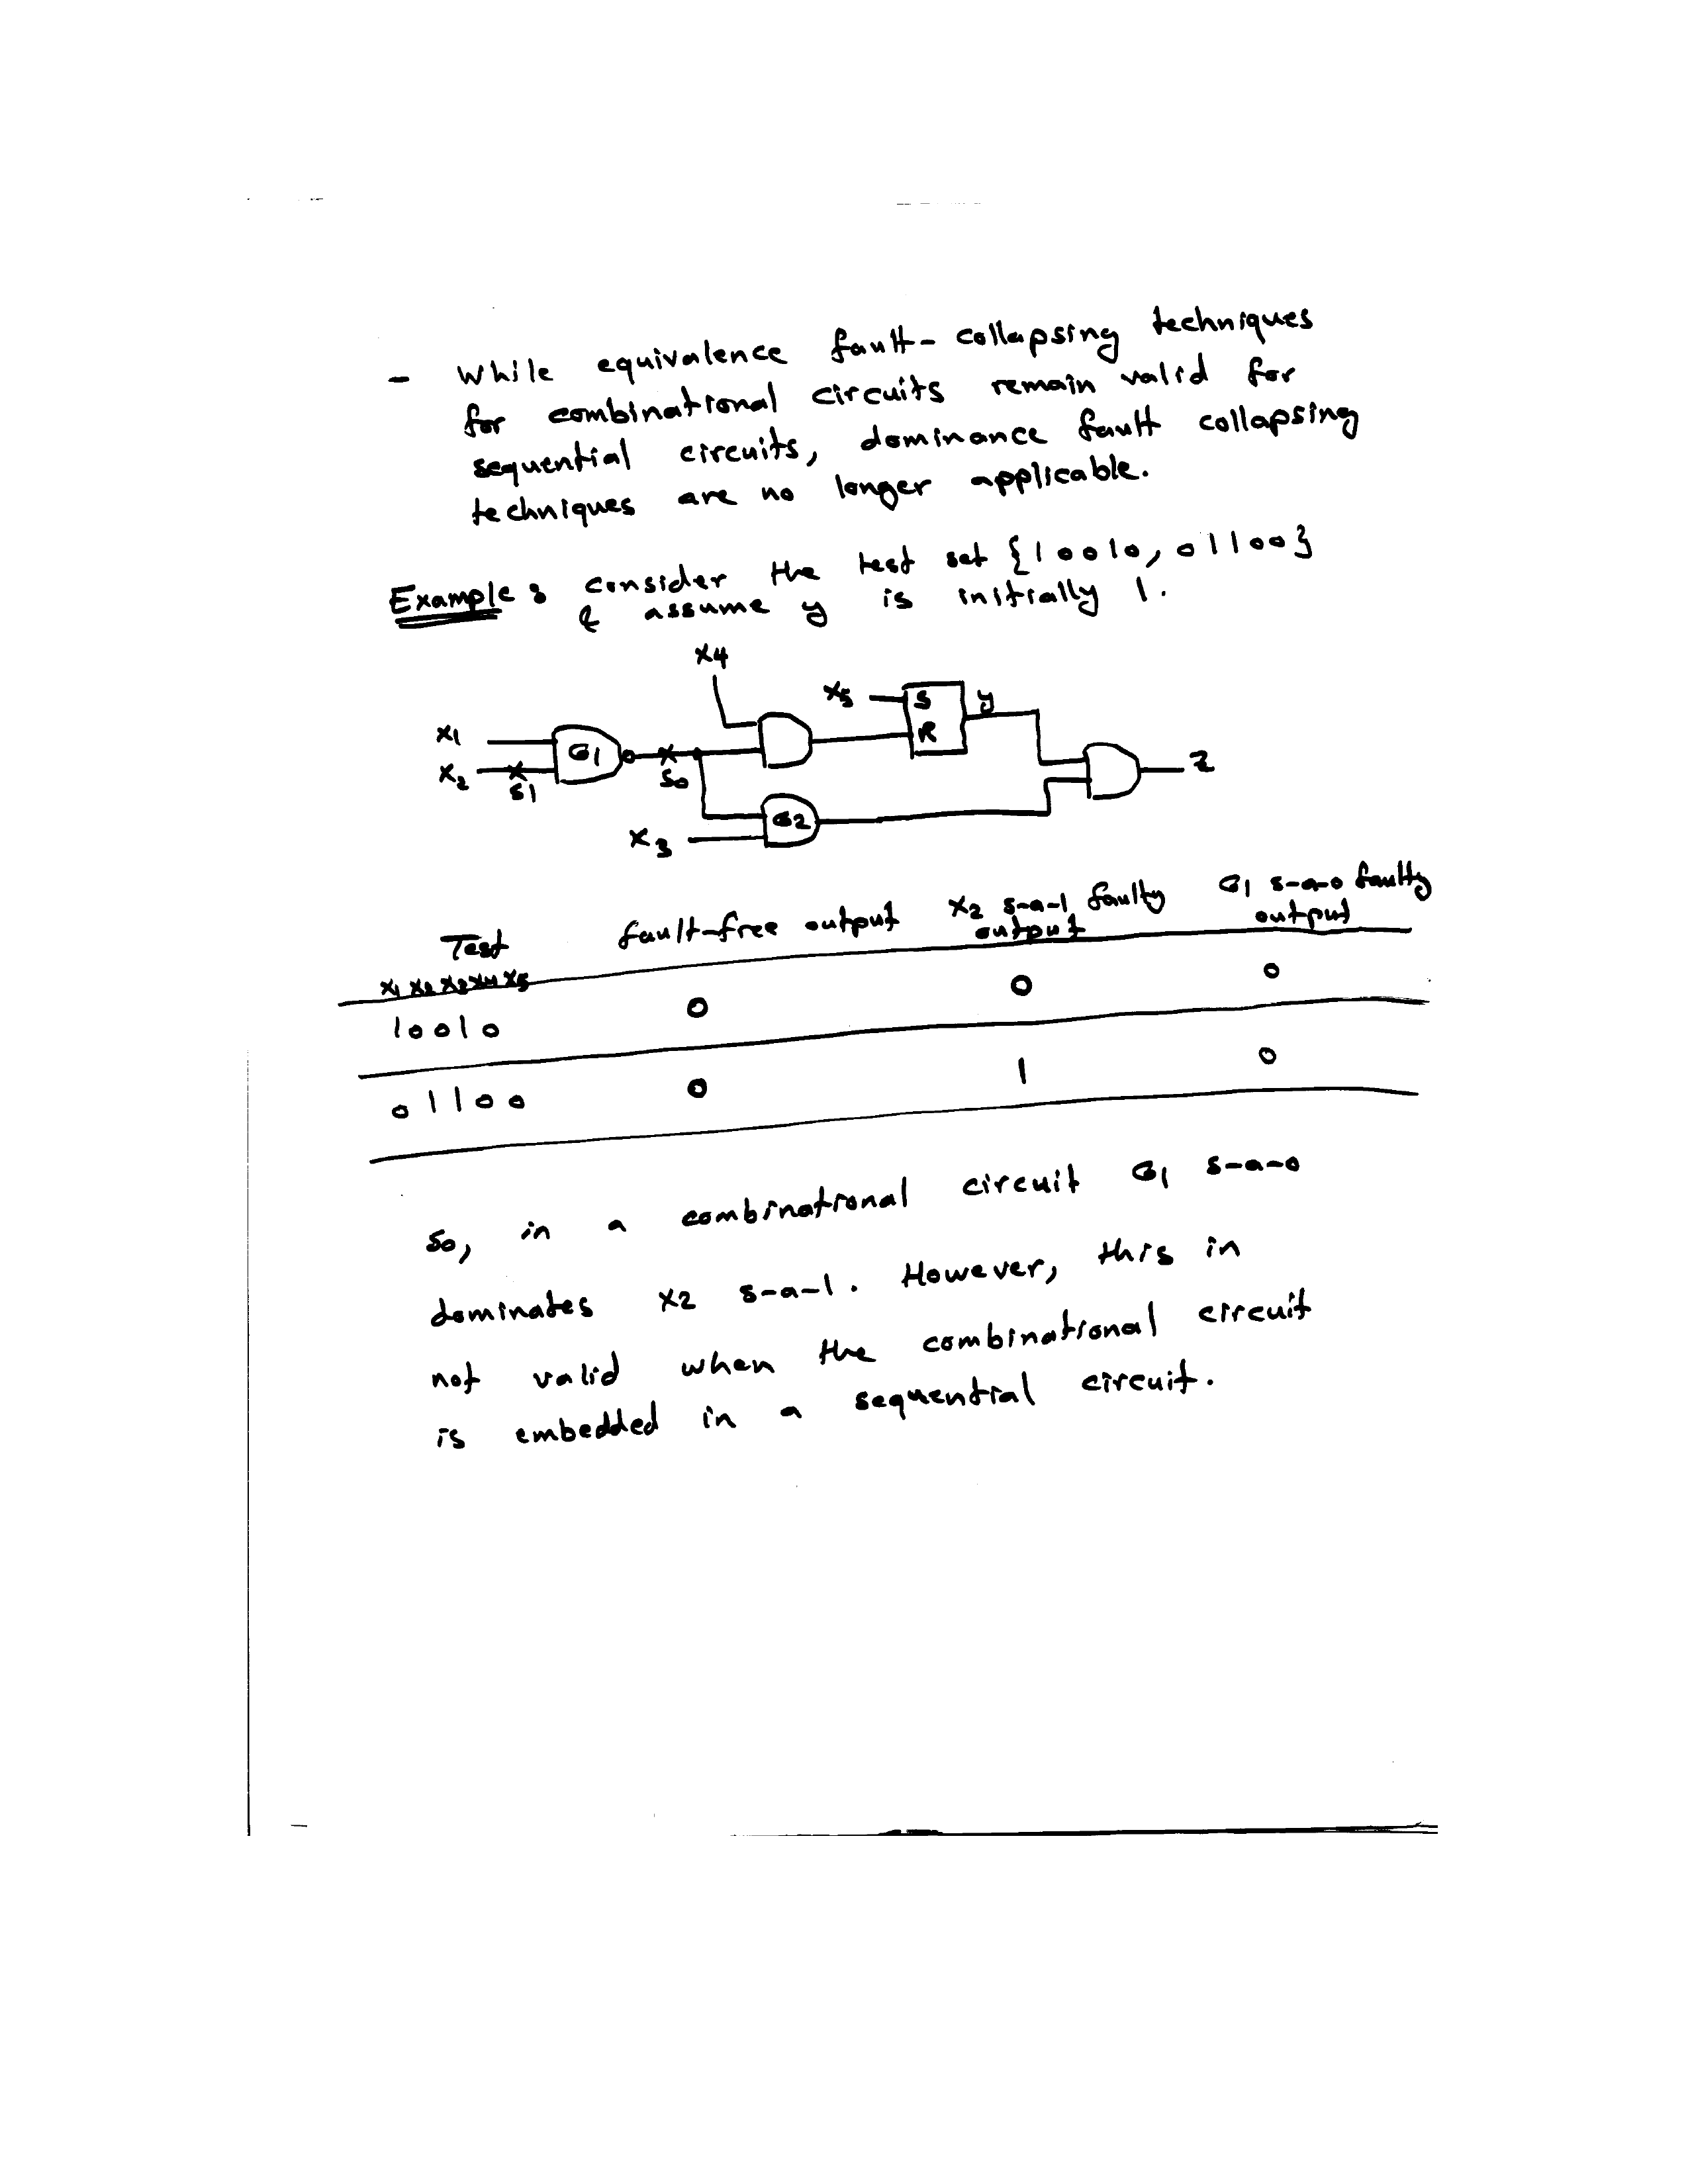 - While equivalence fault-collapsing techniques
for combinational circuits remain valid for
sequential circuits, dominance fault collapsing
techniques are no longer applicable.
Example: consider the test set {10010, 01100}
& assume y is initially 1.
x4
x5 S y
R
x1 G1
x2 s1 s0
z
G2
x3
Test fault-free output x2 s-a-1 faulty output G1 s-a-0 faulty output
x1 x2 x3 x4 x5
10010 0 0 0
01100 0 1 0
So, in a combinational circuit G1 s-a-0
dominates x2 s-a-1. However, this in
not valid when the combinational circuit
is embedded in a sequential circuit.